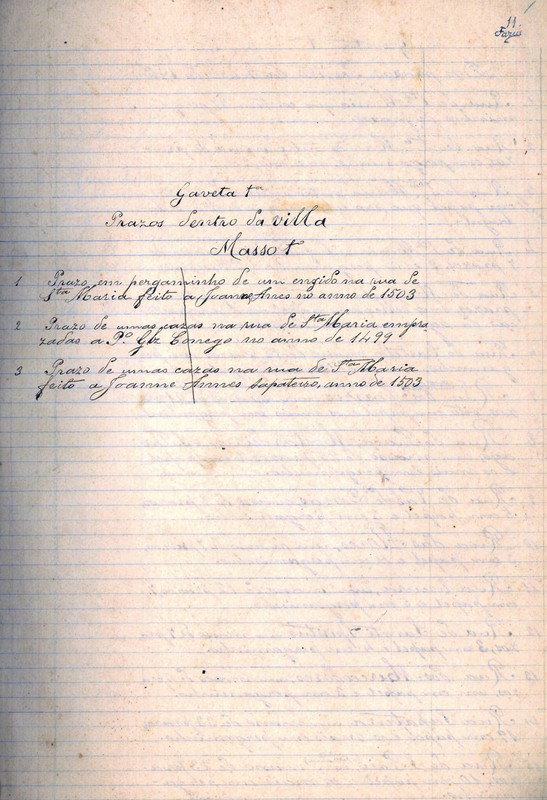 11.
Gaveta 1ª
Prazos dentro da villa
Masso 1
1 Prazo em pergaminho de um enxido na rua de
Sta Maria feito a Joanne Annes no anno de 1503
2 Prazo de umas cazas na rua de Sta Maria empra-
zadas a Pº Glz Conego no anno de 1499
3 Prazo de umas cazas na rua de Sta Maria
feito a Joanne Annes sapateiro, anno de 1503